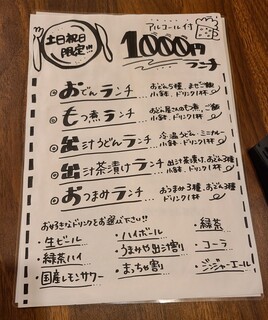 土日祝日
限定!!!
アルコール付
1000円
ランチ
おでんランチ おでん5種、まぜご飯
小鉢、ドリンク1杯
もつ煮ランチ おでん屋さんのもつ煮、ご飯
小鉢、ドリンク1杯
出汁うどんランチ 冷温うどん、ミニカレー
小鉢、ドリンク1杯
出汁茶漬けランチ 出汁茶漬け、おでん3種
小鉢、ドリンク1杯
おつまみランチ おつまみ3種、おでん3種
ドリンク1杯
お好きなドリンクをお選び下さい!!
・生ビール
・緑茶ハイ
・国産レモンサワー
・ハイボール
・うまみや出汁割り
・まっちゃ割り
・緑茶
・コーラ
・ジンジャーエール